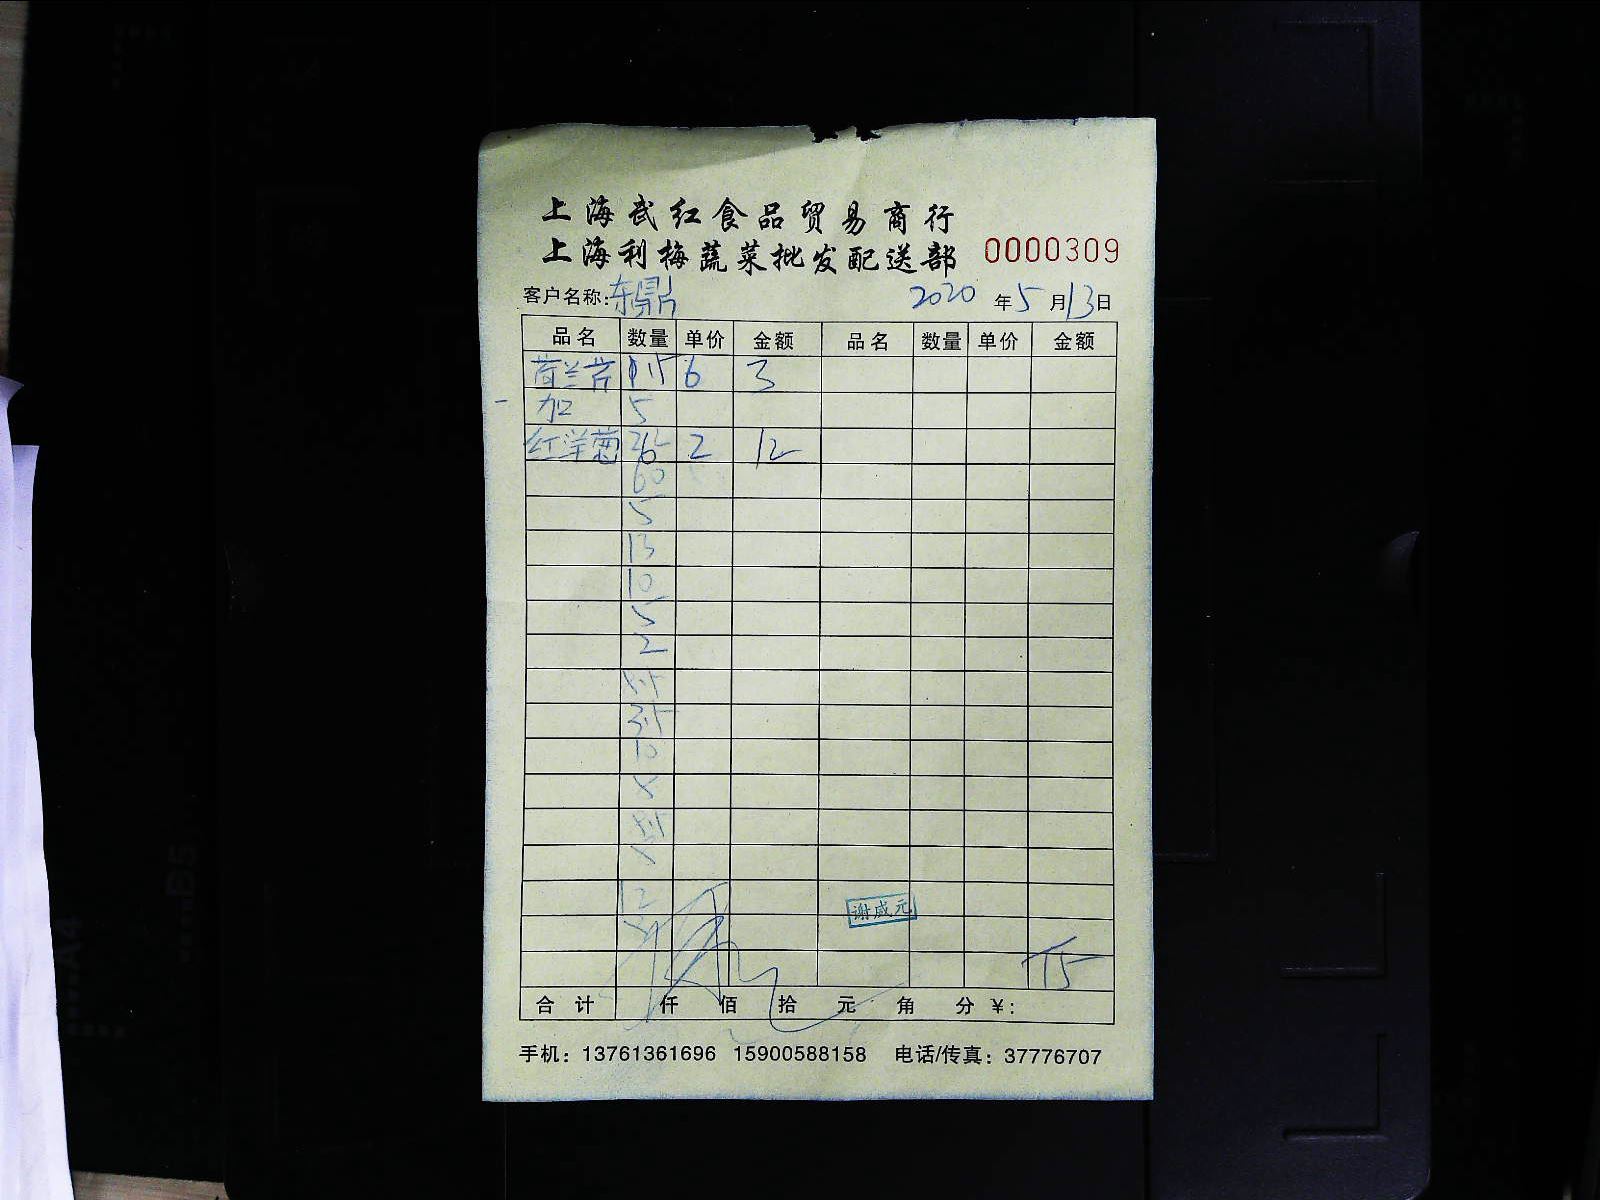 上海武红食品贸易商行
上海利梅蔬菜批发配送部 0000309
客户名称:东鼎 2020 年 5 月 13 日
品名 数量 单价 金额 品名 数量 单价 金额
荷兰芹 6 3
加 5
红洋葱 2 12
60
5
13
10
5
2
3.5
10
12
谢咸元
15
合计 仟 佰 拾 元 角 分 ¥:
手机: 13761361696 15900588158 电话/传真: 37776707
B5
A4